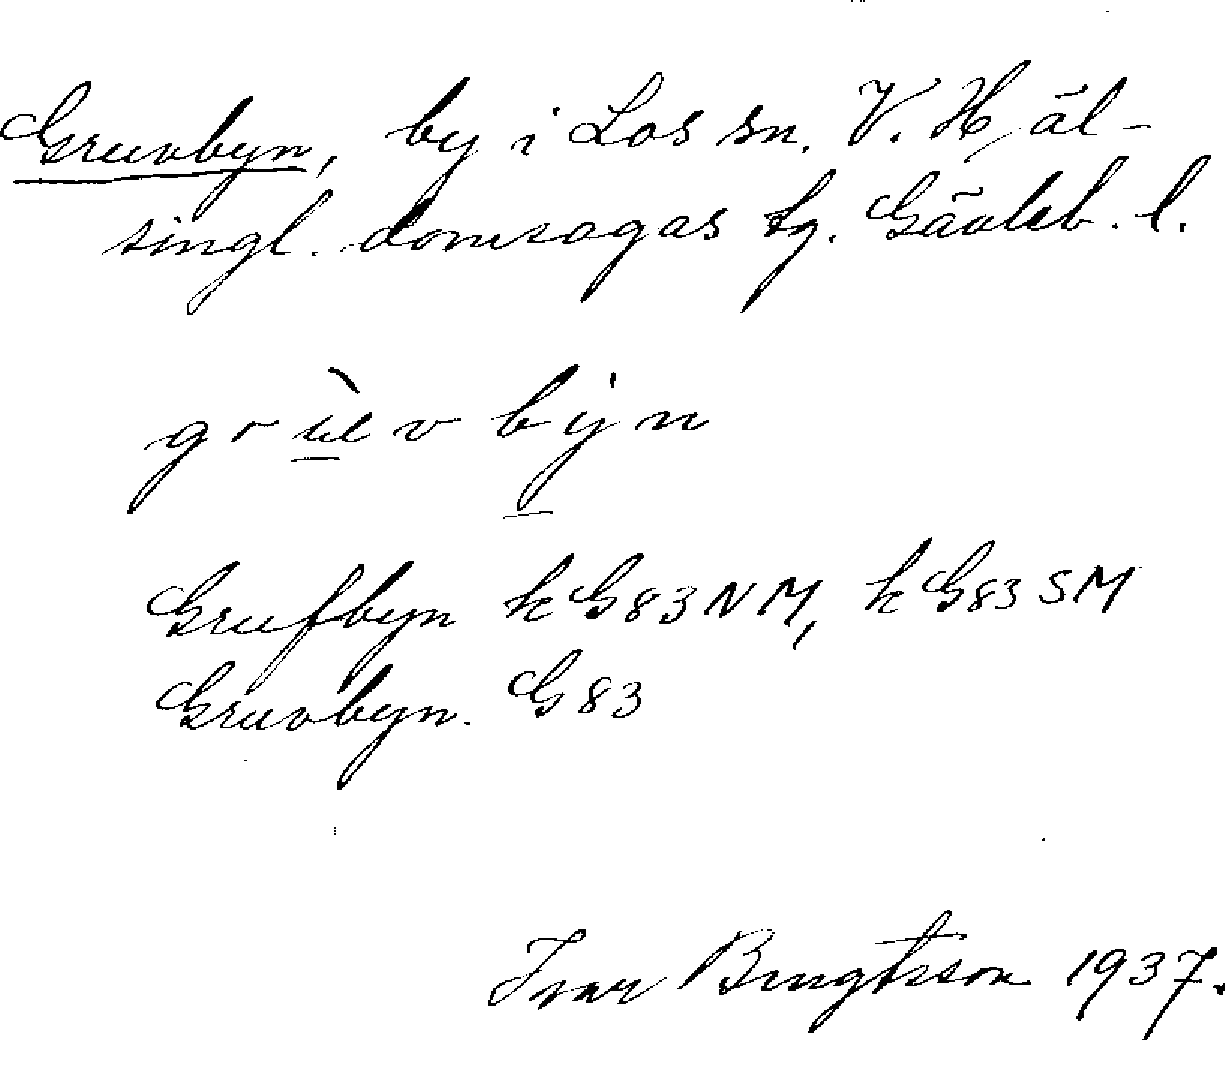 Gruvbyn, by i Los sn. V. Häl-
singl. domsagas tg. Gävleb. l.
grùvbýn
Grufbyn k G83NM, k G83SM
Gruvbyn. G83
Ivar Bengtsson 1937.